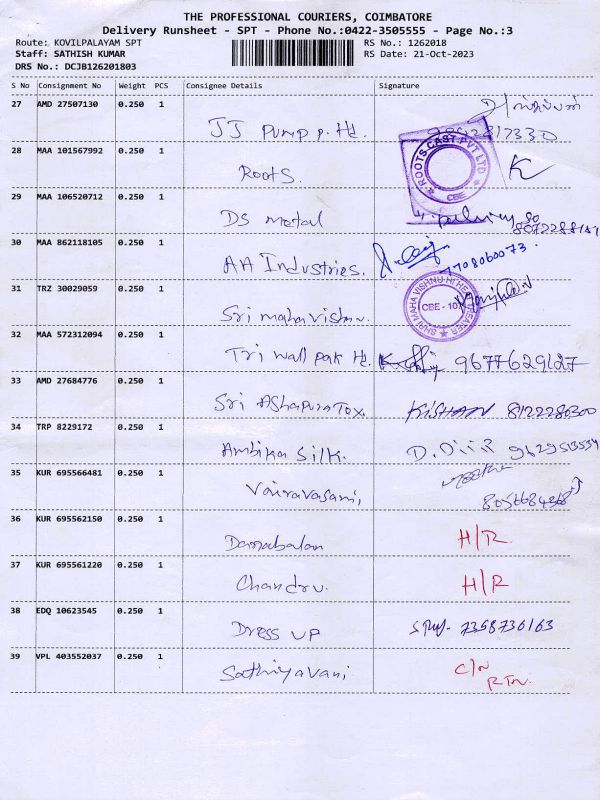 THE PROFESSIONAL COURIERS, COIMBATORE
Delivery Runsheet - SPT - Phone No.:0422-3505555 - Page No.:3
Route: KOVILPALAYAM SPT RS No.: 1262018
Staff: SATHISH KUMAR RS Date: 21-Oct-2023
DRS No.: DCJB126201803
S No Consignment No Weight PCS Consignee Details Signature
27 AMD 27507130 0.250 1
JJ Pump p. Ltd.
28 MAA 101567992 0.250 1
Roots. ROOTS CAST PVT LTD CBE
29 MAA 106520712 0.250 1
DS metal
30 MAA 862118105 0.250 1
AA Industries. 7708060073.
31 TRZ 30029059 0.250 1
Sri maha vishnu SHRI MAHA VISHNU HI HEAT TREATER CBE - 107
32 MAA 572312094 0.250 1
Tri wall pak 9677629127
33 AMD 27684776 0.250 1
Sri Ashapura Tex. KISHAN 8122280300
34 TRP 8229172 0.250 1
Ambika Silk. 9629513534
35 KUR 695566481 0.250 1
Vairavasami,
36 KUR 695562150 0.250 1
Danabalan H/R
37 KUR 695561220 0.250 1
Chandru. H/R
38 EDQ 10623545 0.250 1
Dress UP 7358736163
39 VPL 403552037 0.250 1
Sathiyavani C/N
RTN.